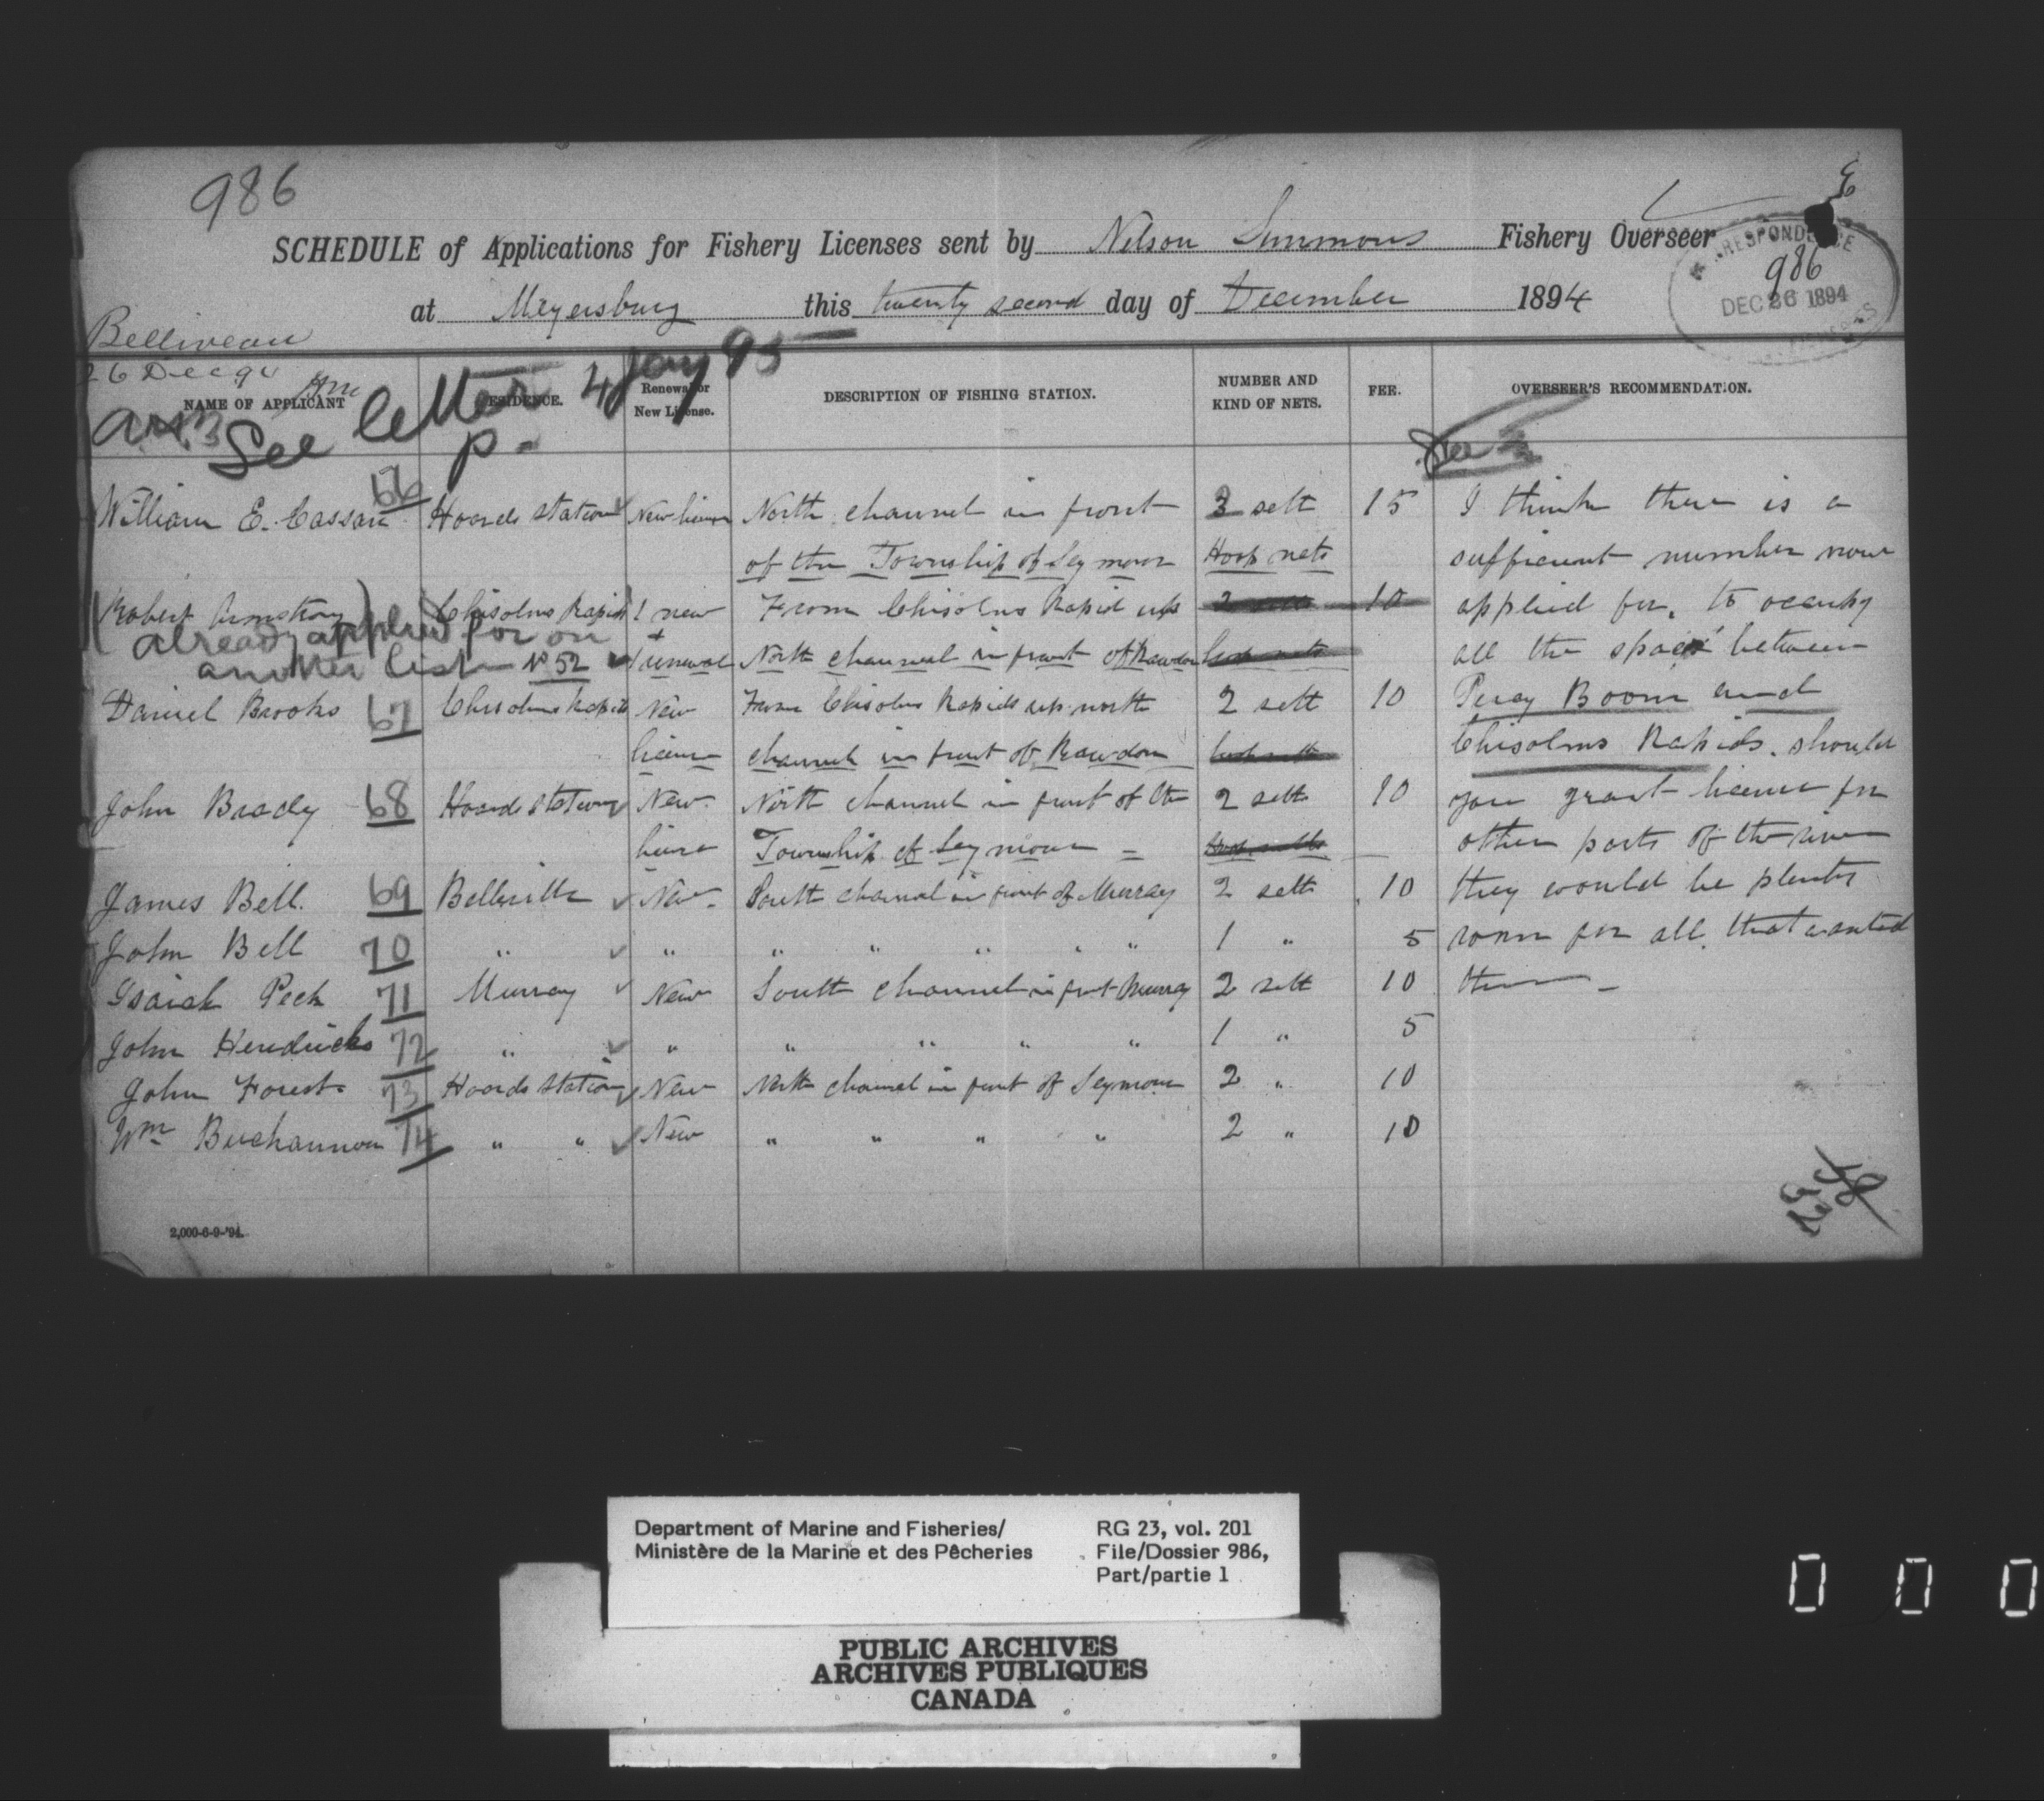 986
SCHEDULE of Applications for Fishery Licenses sent by Nelson Simmons Fishery Overseer
at Meyersburg this twenty second day of December 1894
CORRESPONDENCE
986
DEC 26 1894
FISHERIES
Belliveau
26 Dec 94
See letter 4 Jany 95
p-
NAME OF APPLICANT RESIDENCE. Renewal or New License. DESCRIPTION OF FISHING STATION. NUMBER AND KIND OF NETS. FEE. OVERSEER'S RECOMMENDATION.
William E. Cassan 66 Hoards Station New license North channel in front 3 sett 15 I think there is a
of the Township of Seymour Hoop nets sufficient number now
(Robert Armstrong) Chisolms Rapids 1 new From Chisolms Rapid up 2 setts 10 applied for, to occupy
already applied for on + all the space between
another list No 52 1 renewal North channel in front of Rawdon hoop nets
Daniel Brooks 67 Chisolms Rapids New From Chisolms Rapids up north 2 sett 10 Percy Boom and
license channel in front of Rawdon hoop netts Chisolms Rapids. should
John Brady 68 Hoards Station New North channel in front of the 2 setts 10 you grant license for
license Township of Seymour = Hoop netts other parts of the river
James Bell. 69 Belleville New South channel in front of Murray 2 setts 10 they would be plenty
John Bell 70 " " " " " " " 1 " 5 room for all. that wanted
Isaiah Peck 71 Murray New South channel in front Murray 2 sett 10 them -
John Hendricks 72 " " " " " " 1 " 5
John Forest 73 Hoards Station New North channel in front of Seymour 2 " 10
Wm Buchannon 74 " " New " " " " 2 " 10
2,000-6-9-'94.
Department of Marine and Fisheries/
Ministère de la Marine et des Pêcheries
RG 23, vol. 201
File/Dossier 986,
Part/partie 1
PUBLIC ARCHIVES
ARCHIVES PUBLIQUES
CANADA
0 0 0